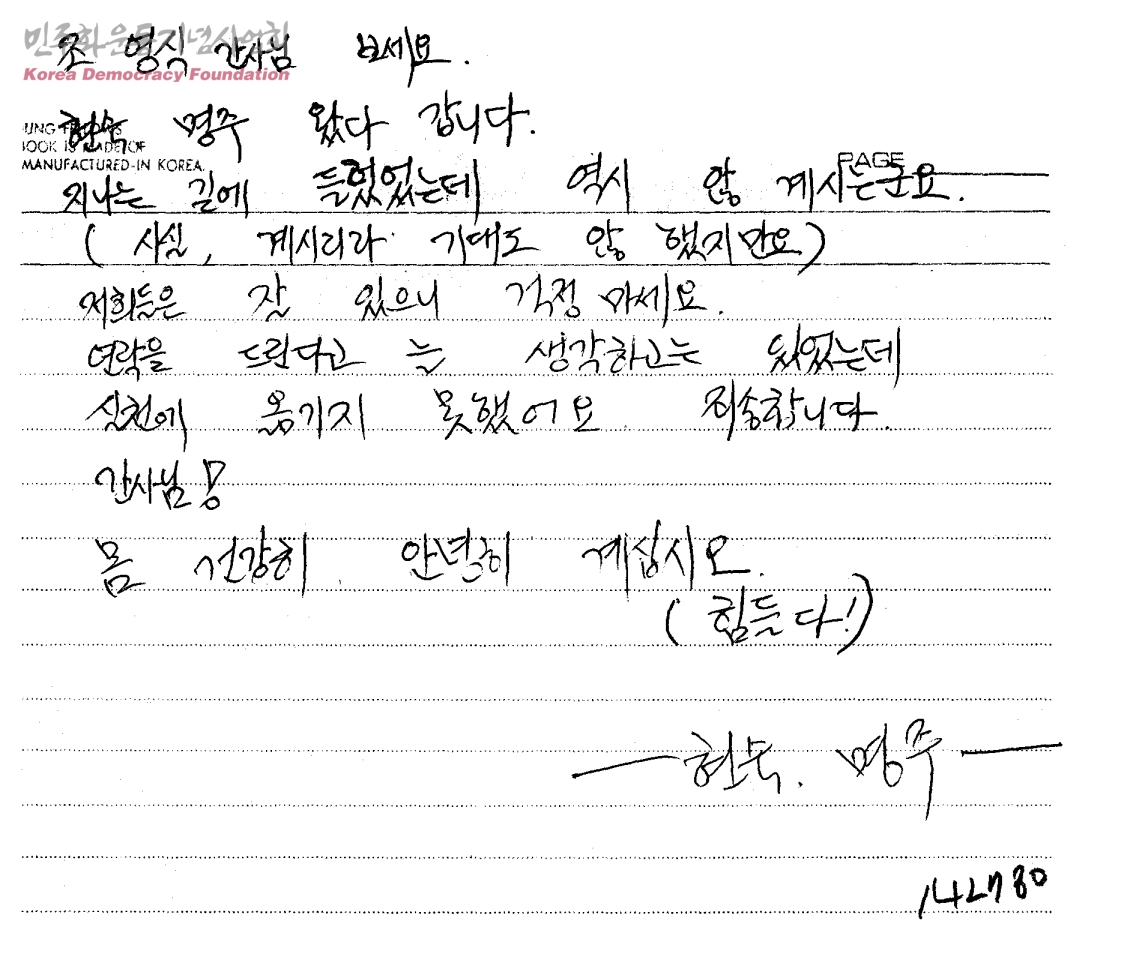 민주화운동기념사업회
Korea Democracy Foundation
조 영식 간사님 보세요.
현숙 명주 왔다 갑니다.
MANUFACTURED-IN KOREA.
PAGE
지나는 길에 들렀었는데 역시 않 계시는군요.
( 사실, 계시리라 기대도 않 했지만요)
저희들은 잘 있으니 걱정 마세요.
연락을 드린다고 는 생각하고는 있었는데
실천에 옮기지 못했어요 죄송합니다.
간사님!
몸 건강히 안녕히 계십시오.
( 힘든다!)
현숙. 명주
142780